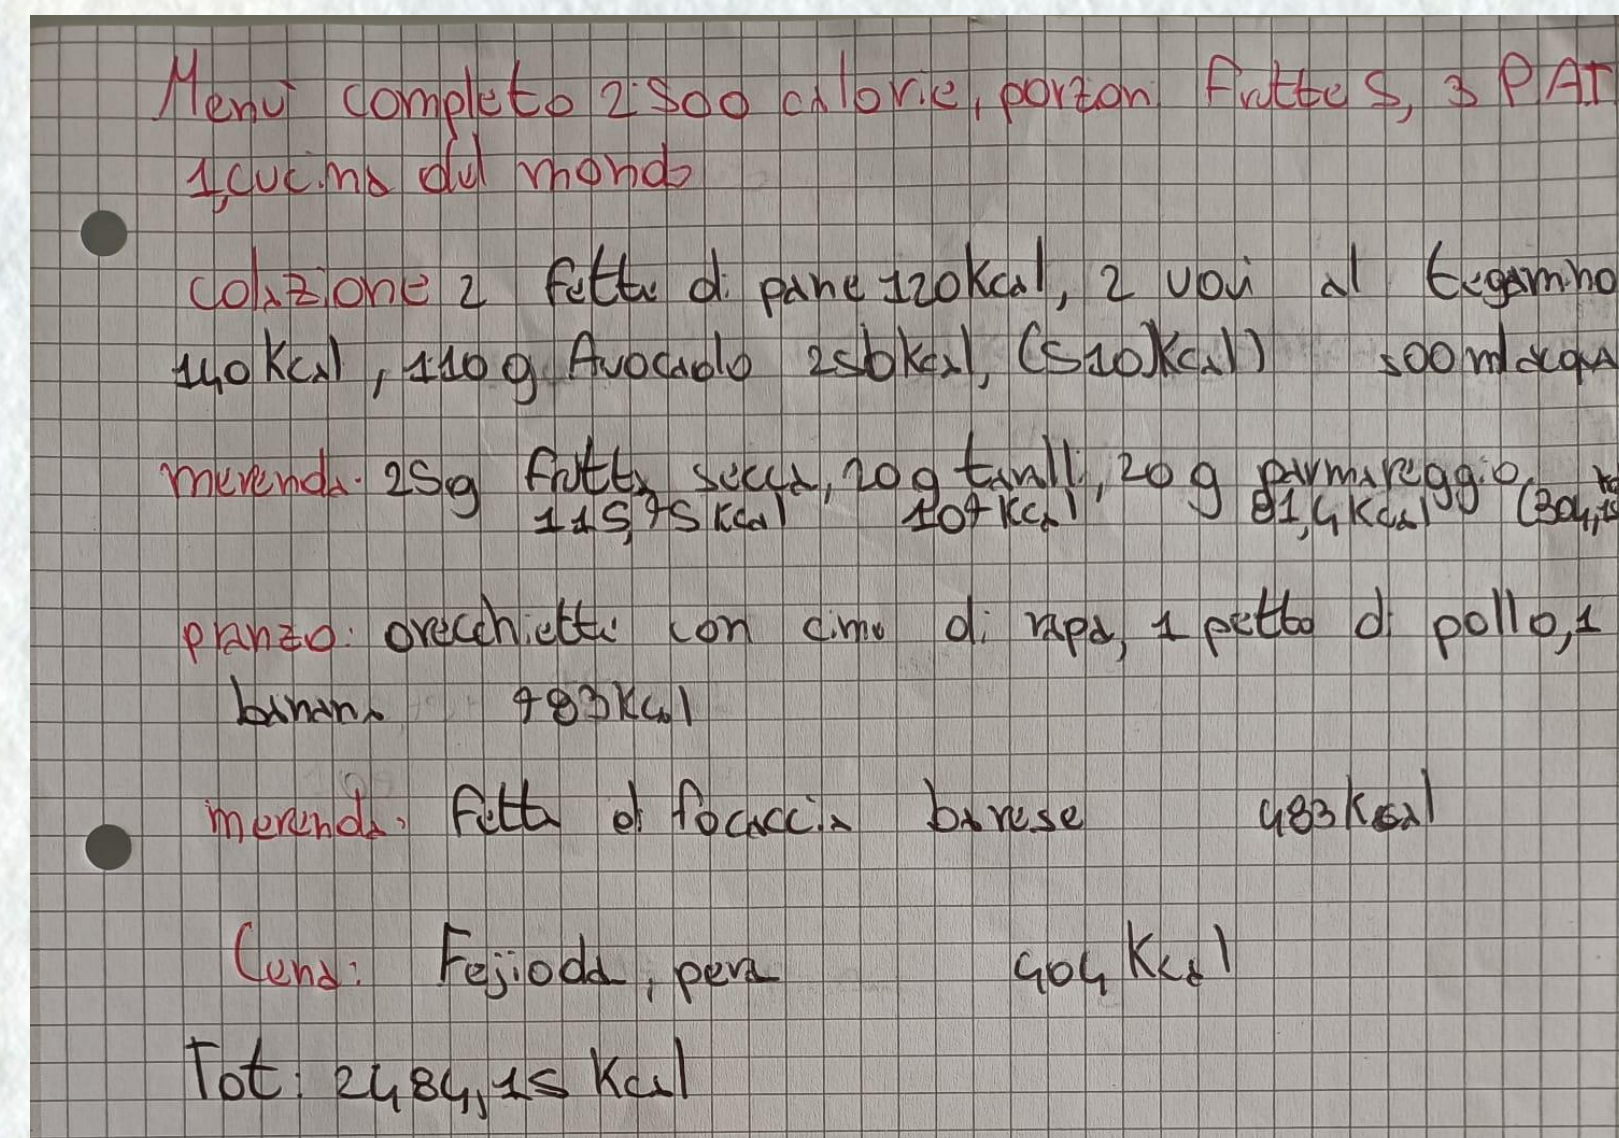 Menù completo 2500 calorie, porzion frutta 5, 3 PAT
1, cucina del mondo
colazione 2 fette di pane 120Kcal, 2 uova al tegamino
140 Kcal, 110 g Avocado 250kcal, (510Kcal) 500 ml acqua
merenda: 25g frutta secca, 20g taralli, 20 g parmareggio
115,75 Kcal 107 Kcal 81,4Kcal (304,15
pranzo: orecchiette con cime di rapa, 1 petto di pollo, 1
banana 783Kcal
merenda: Fetta di focaccia barese 483 Kcal
Cena: Fejioda, pera 404 Kcal
Tot: 2484,15 Kcal